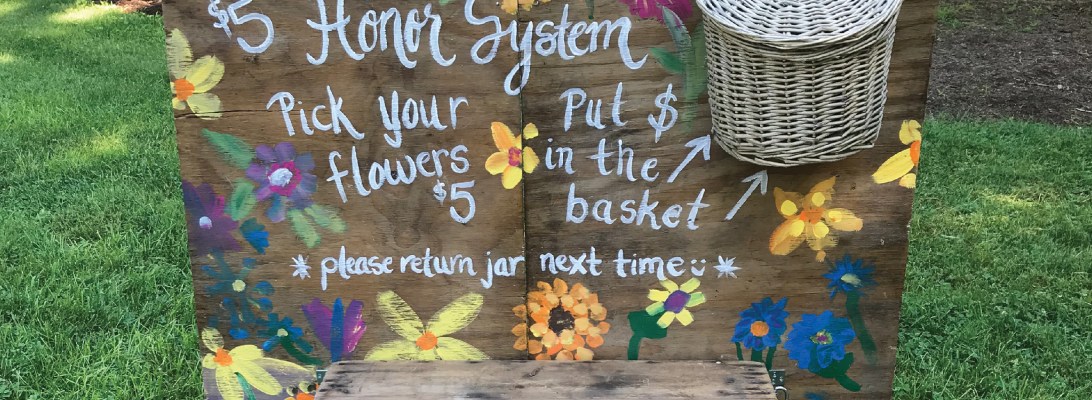 $5 Honor System
Pick your
flowers
$5
Put $
in the
basket
*please return jar next time☺*